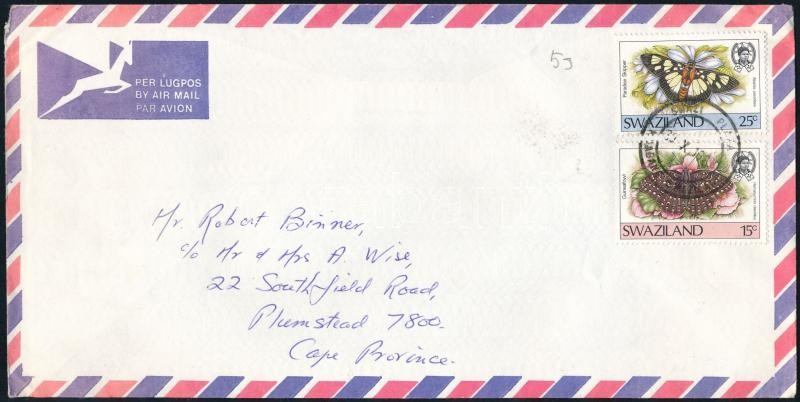 PER LUGPOS
BY AIR MAIL
PAR AVION
53
Paradise Skipper
SWAZILAND 25c
PLAZA
X
Gunsafowl
SWAZILAND 15c
Mr. Robert Binner,
c/o Mr & Mrs A. Wise,
22 Southfield Road,
Plumstead 7800.
Cape Province.